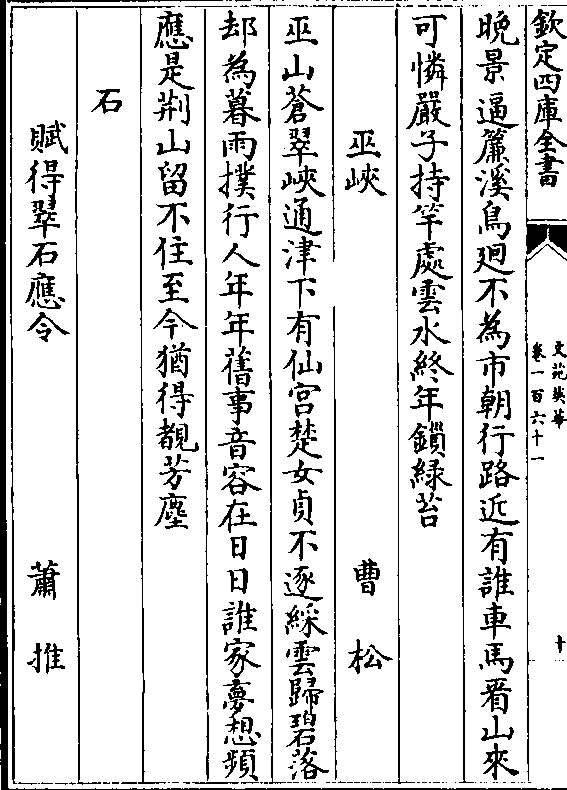 欽定四庫全書
文苑英華
卷一百六十一
十
晚景逼簾溪鳥廻不為市朝行路近有誰車馬㸔山來
可憐嚴子持竿處雲水終年鎻緑苔
巫峽 曹松
巫山蒼翠峽通津下有仙宫楚女貞不逐綵雲歸碧落
却為暮雨撲行人年年舊事音容在日日誰家夢想頻
應是荆山留不住至今猶得覩芳塵
石
賦得翠石應令 蕭推